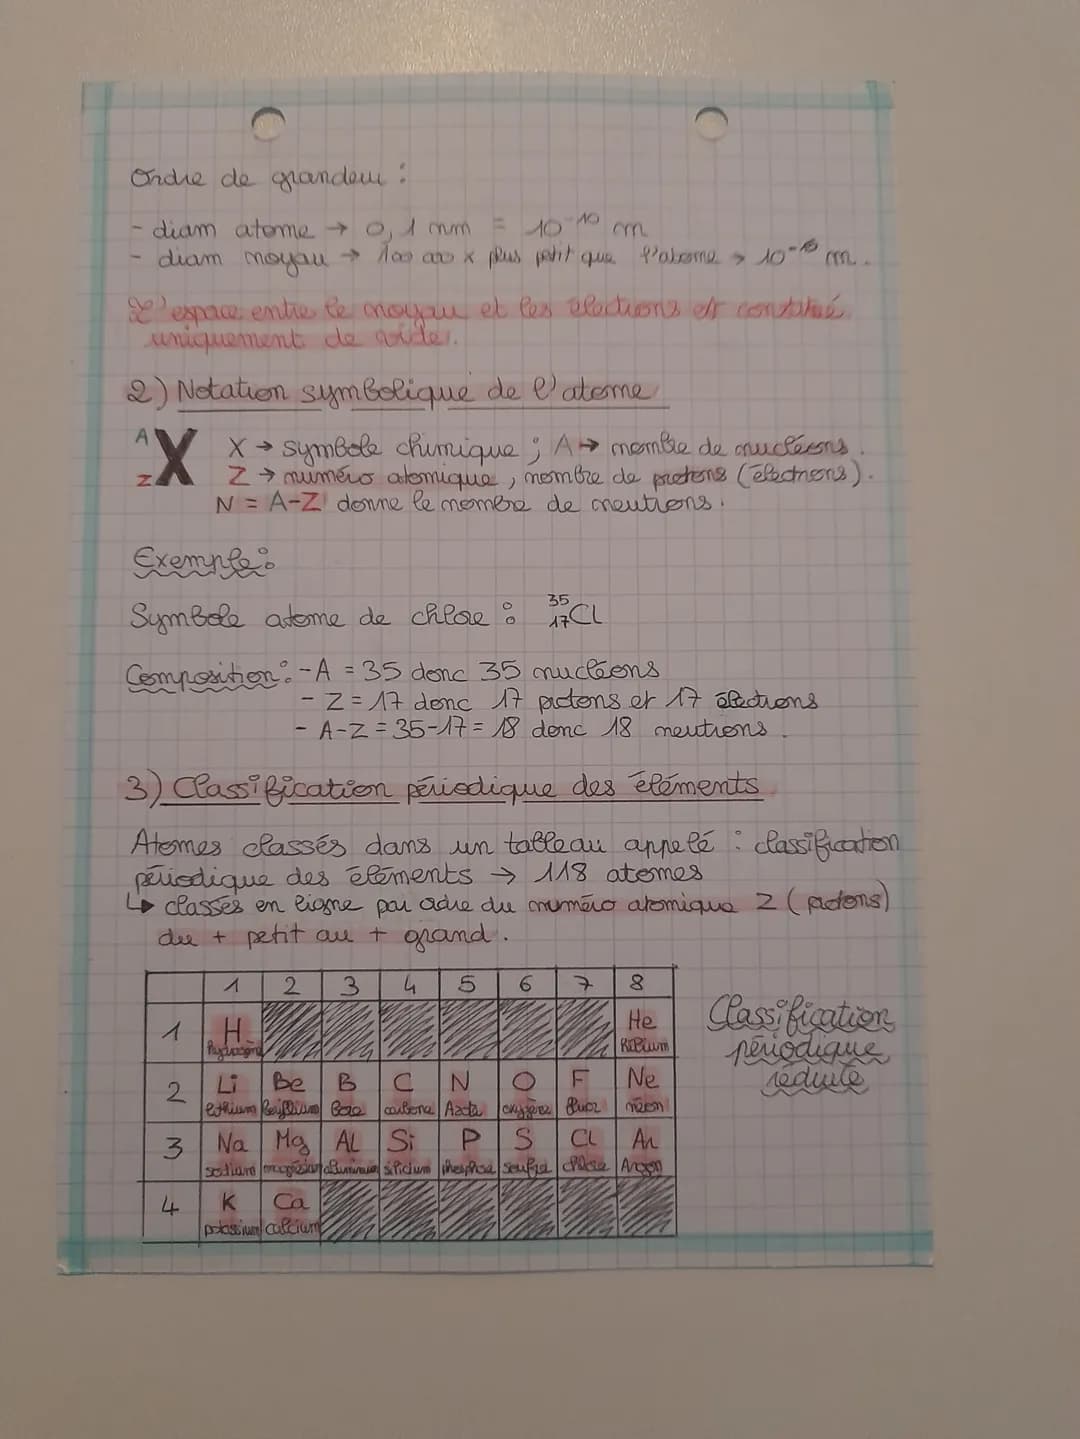 Ordre de grandeur :
- diam atome → 0,1 nm = 10⁻¹⁰ m
- diam noyau → 100 000 x plus petit que l'atome → 10⁻¹⁵ m.
L'espace entre le noyau et les électrons est constitué
uniquement de vide.
2) Notation symbolique de l'atome
A X → symbole chimique ; A → nombre de nucléons.
Z X Z → numéro atomique, nombre de protons (électrons).
N = A-Z donne le nombre de neutrons.
Exemple :
Symbole atome de chlore : ³⁵₁₇Cl
Composition : - A = 35 donc 35 nucléons
- Z = 17 donc 17 protons et 17 électrons
- A-Z = 35-17 = 18 donc 18 neutrons.
3) Classification périodique des éléments
Atomes classés dans un tableau appelé : classification
périodique des éléments → 118 atomes
↳ classés en ligne par ordre du numéro atomique Z (protons)
du + petit au + grand.
1 2 3 4 5 6 7 8
1 H He
hydrogène hélium
2 Li Be B C N O F Ne
lithium béryllium Bore carbone Azote oxygène fluor néon
3 Na Mg Al Si P S Cl Ar
sodium magnésium aluminium silicium phosphore soufre chlore Argon
4 K Ca
potassium calcium
Classification
périodique
réduite